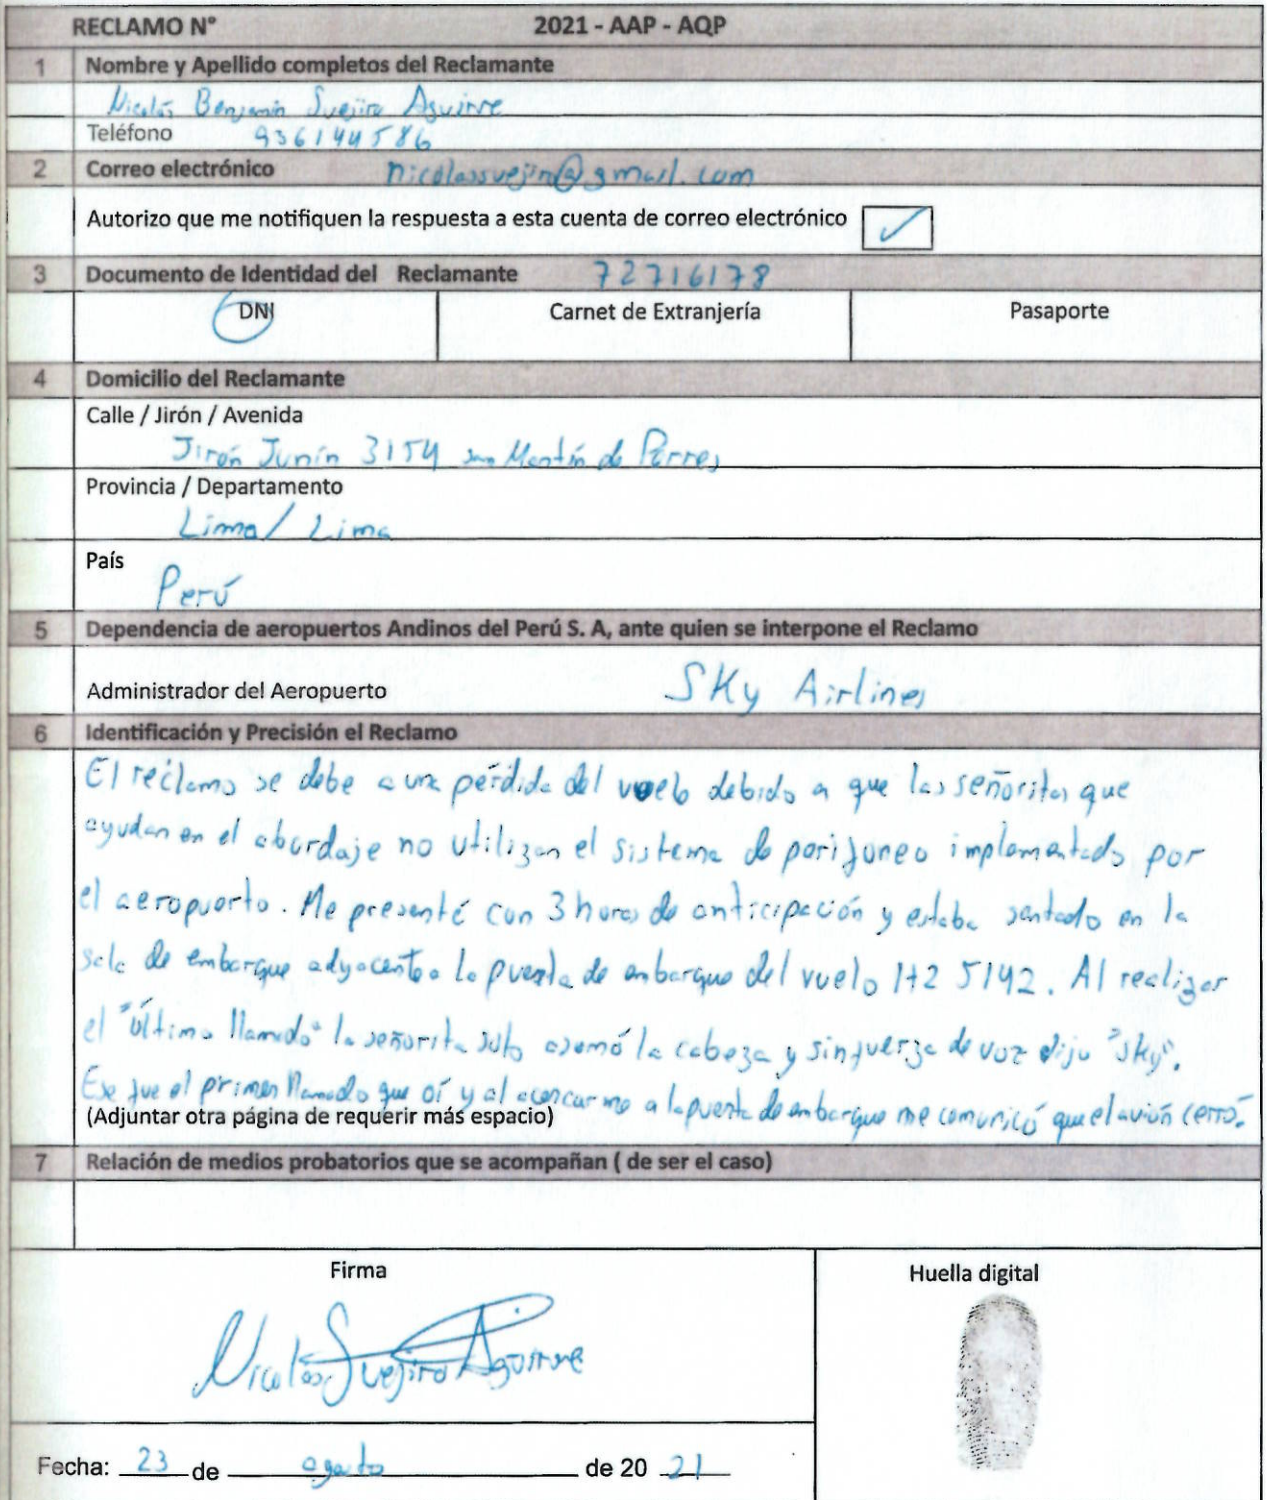 RECLAMO N° 2021 - AAP - AQP
1 Nombre y Apellido completos del Reclamante
Nicolás Benjamín Suejiro Aguirre
Teléfono 936144586
2 Correo electrónico nicolassuejiro@gmail.com
Autorizo que me notifiquen la respuesta a esta cuenta de correo electrónico ✓
3 Documento de Identidad del Reclamante 72716178
DNI Carnet de Extranjería Pasaporte
4 Domicilio del Reclamante
Calle / Jirón / Avenida
Jirón Junín 3154 san Martín de Porres
Provincia / Departamento
Lima / Lima
País
Perú
5 Dependencia de aeropuertos Andinos del Perú S. A, ante quien se interpone el Reclamo
Administrador del Aeropuerto Sky Airlines
6 Identificación y Precisión el Reclamo
El reclamo se debe a una pérdida del vuelo debido a que las señoritas que
ayudan en el abordaje no utilizan el sistema de perifoneo implementado por
el aeropuerto. Me presenté con 3 horas de anticipación y estaba sentado en la
sala de embarque adyacente a la puerta de embarque del vuelo H2 5142. Al realizar
el "último llamado" la señorita solo asomó la cabeza y sin fuerza de voz dijo "Sky".
Ese fue el primer llamado que oí y al acercarme a la puerta de embarque me comunicó que el avión cerró.
(Adjuntar otra página de requerir más espacio)
7 Relación de medios probatorios que se acompañan ( de ser el caso)
Firma Huella digital
Nicolás Suejiro Aguirre
Fecha: 23 de agosto de 20 21